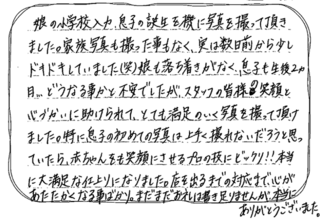 娘の小学校入学、息子の誕生を機に写真を撮って頂き
ました。家族写真も撮った事もなく、実は数日前から少し
ドキドキしていました(笑)娘も落ち着きがなく、息子も生後2ヵ
月…どうなる事かと不安でしたが、スタッフの皆様の笑顔と
心づかいに助けられて、とても満足のいく写真を撮って頂け
ました。特に息子の初めての写真は上手く撮れないだろうと思っ
ていたら、赤ちゃんをも笑顔にさせるプロの技にビックリ!!本当
に大満足な仕上りになりました。店を出るまでの対応まで、心が
あたたかくなる事ばかり。まだまだお礼は書き足りませんが、本当に
ありがとうございました。